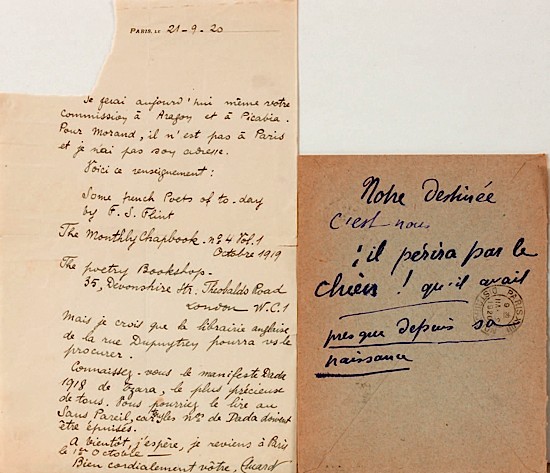 PARIS, LE 21-9-20
Je ferai aujourd'hui même votre
commission à Aragon et à Picabia.
Pour Morand, il n'est pas à Paris
et je n'ai pas son adresse.
Voici ce renseignement :
Some french Poets of to-day
by F. S. Flint
The Monthly Chapbook. n° 4 Vol. 1
Octobre 1919
The poetry Bookshop.
35, Devonshire Str, Theobalds Road
London W.C.1
Mais je crois que la librairie anglaise
de la rue Dupuytrey pourra vs le
procurer.
Connaissez-vous le manifeste Dada
1918 de Tzara, le plus précieuse
de tous. Vous pourriez le lire au
Sans Pareil, car les nos de Dada doivent
être épuisés.
A bientôt, j'espère, je reviens à Paris
le 1er Octobre
Bien cordialement vôtre,
Notre destinée
C'est nous
il périra par le
chien ! qu'il avait
presque depuis sa
naissance
PARIS